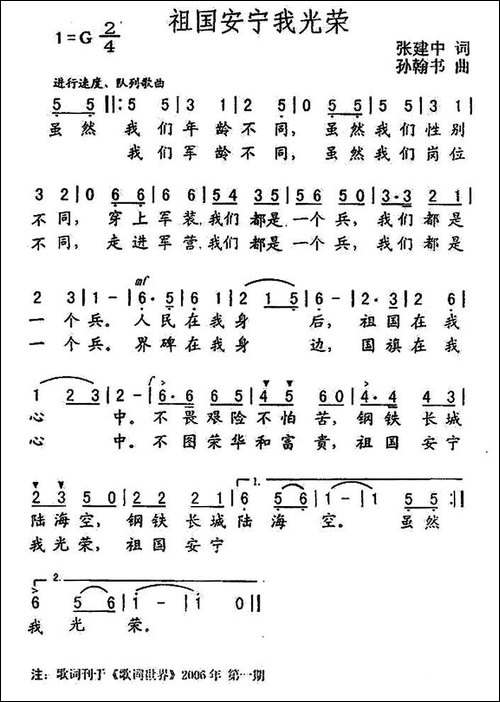 祖国安宁我光荣
1=G 2/4
张建中 词
孙翰书 曲
进行速度、队列歌曲
5 5 ‖: 5 5 | 3 1 | 2 5 | 0 5 5 | 5 5 | 3 1 |
虽然 我们年龄不同, 虽然我们性别
我们军龄不同, 虽然我们岗位
3 2 | 0 6 6 | 6 6 | 54 35 | 56 50 | 3·3 2 1 |
不同, 穿上军装,我们都是一个兵,我们都是
不同, 走进军营,我们都是一个兵,我们都是
mf
2 3 | 1 - | 6· 5 | 6 1 | 2 1 5 | 6 - | 2· 3 | 2 6 |
一个兵。人民在我身后, 祖国在我
一个兵。界碑在我身边, 国旗在我
1 2 3 | 2 - | 6· 6 6 5 | 4 5 | 4 5 | 6 0 | 4· 4 4 3 |
心中。不畏艰险不怕苦,钢铁长城
心中。不图荣华和富贵,祖国安宁
2 3 5 0 | 2 2 2 1 | 6 5 6 | 1 - | 1 5 5 :‖
1.
陆海空,钢铁长城陆海空。虽然
我光荣,祖国安宁
2.
6 5 6 | 1 - | 1 0 ‖
我光荣。
注:歌词刊于《歌词世界》2006年 第一期